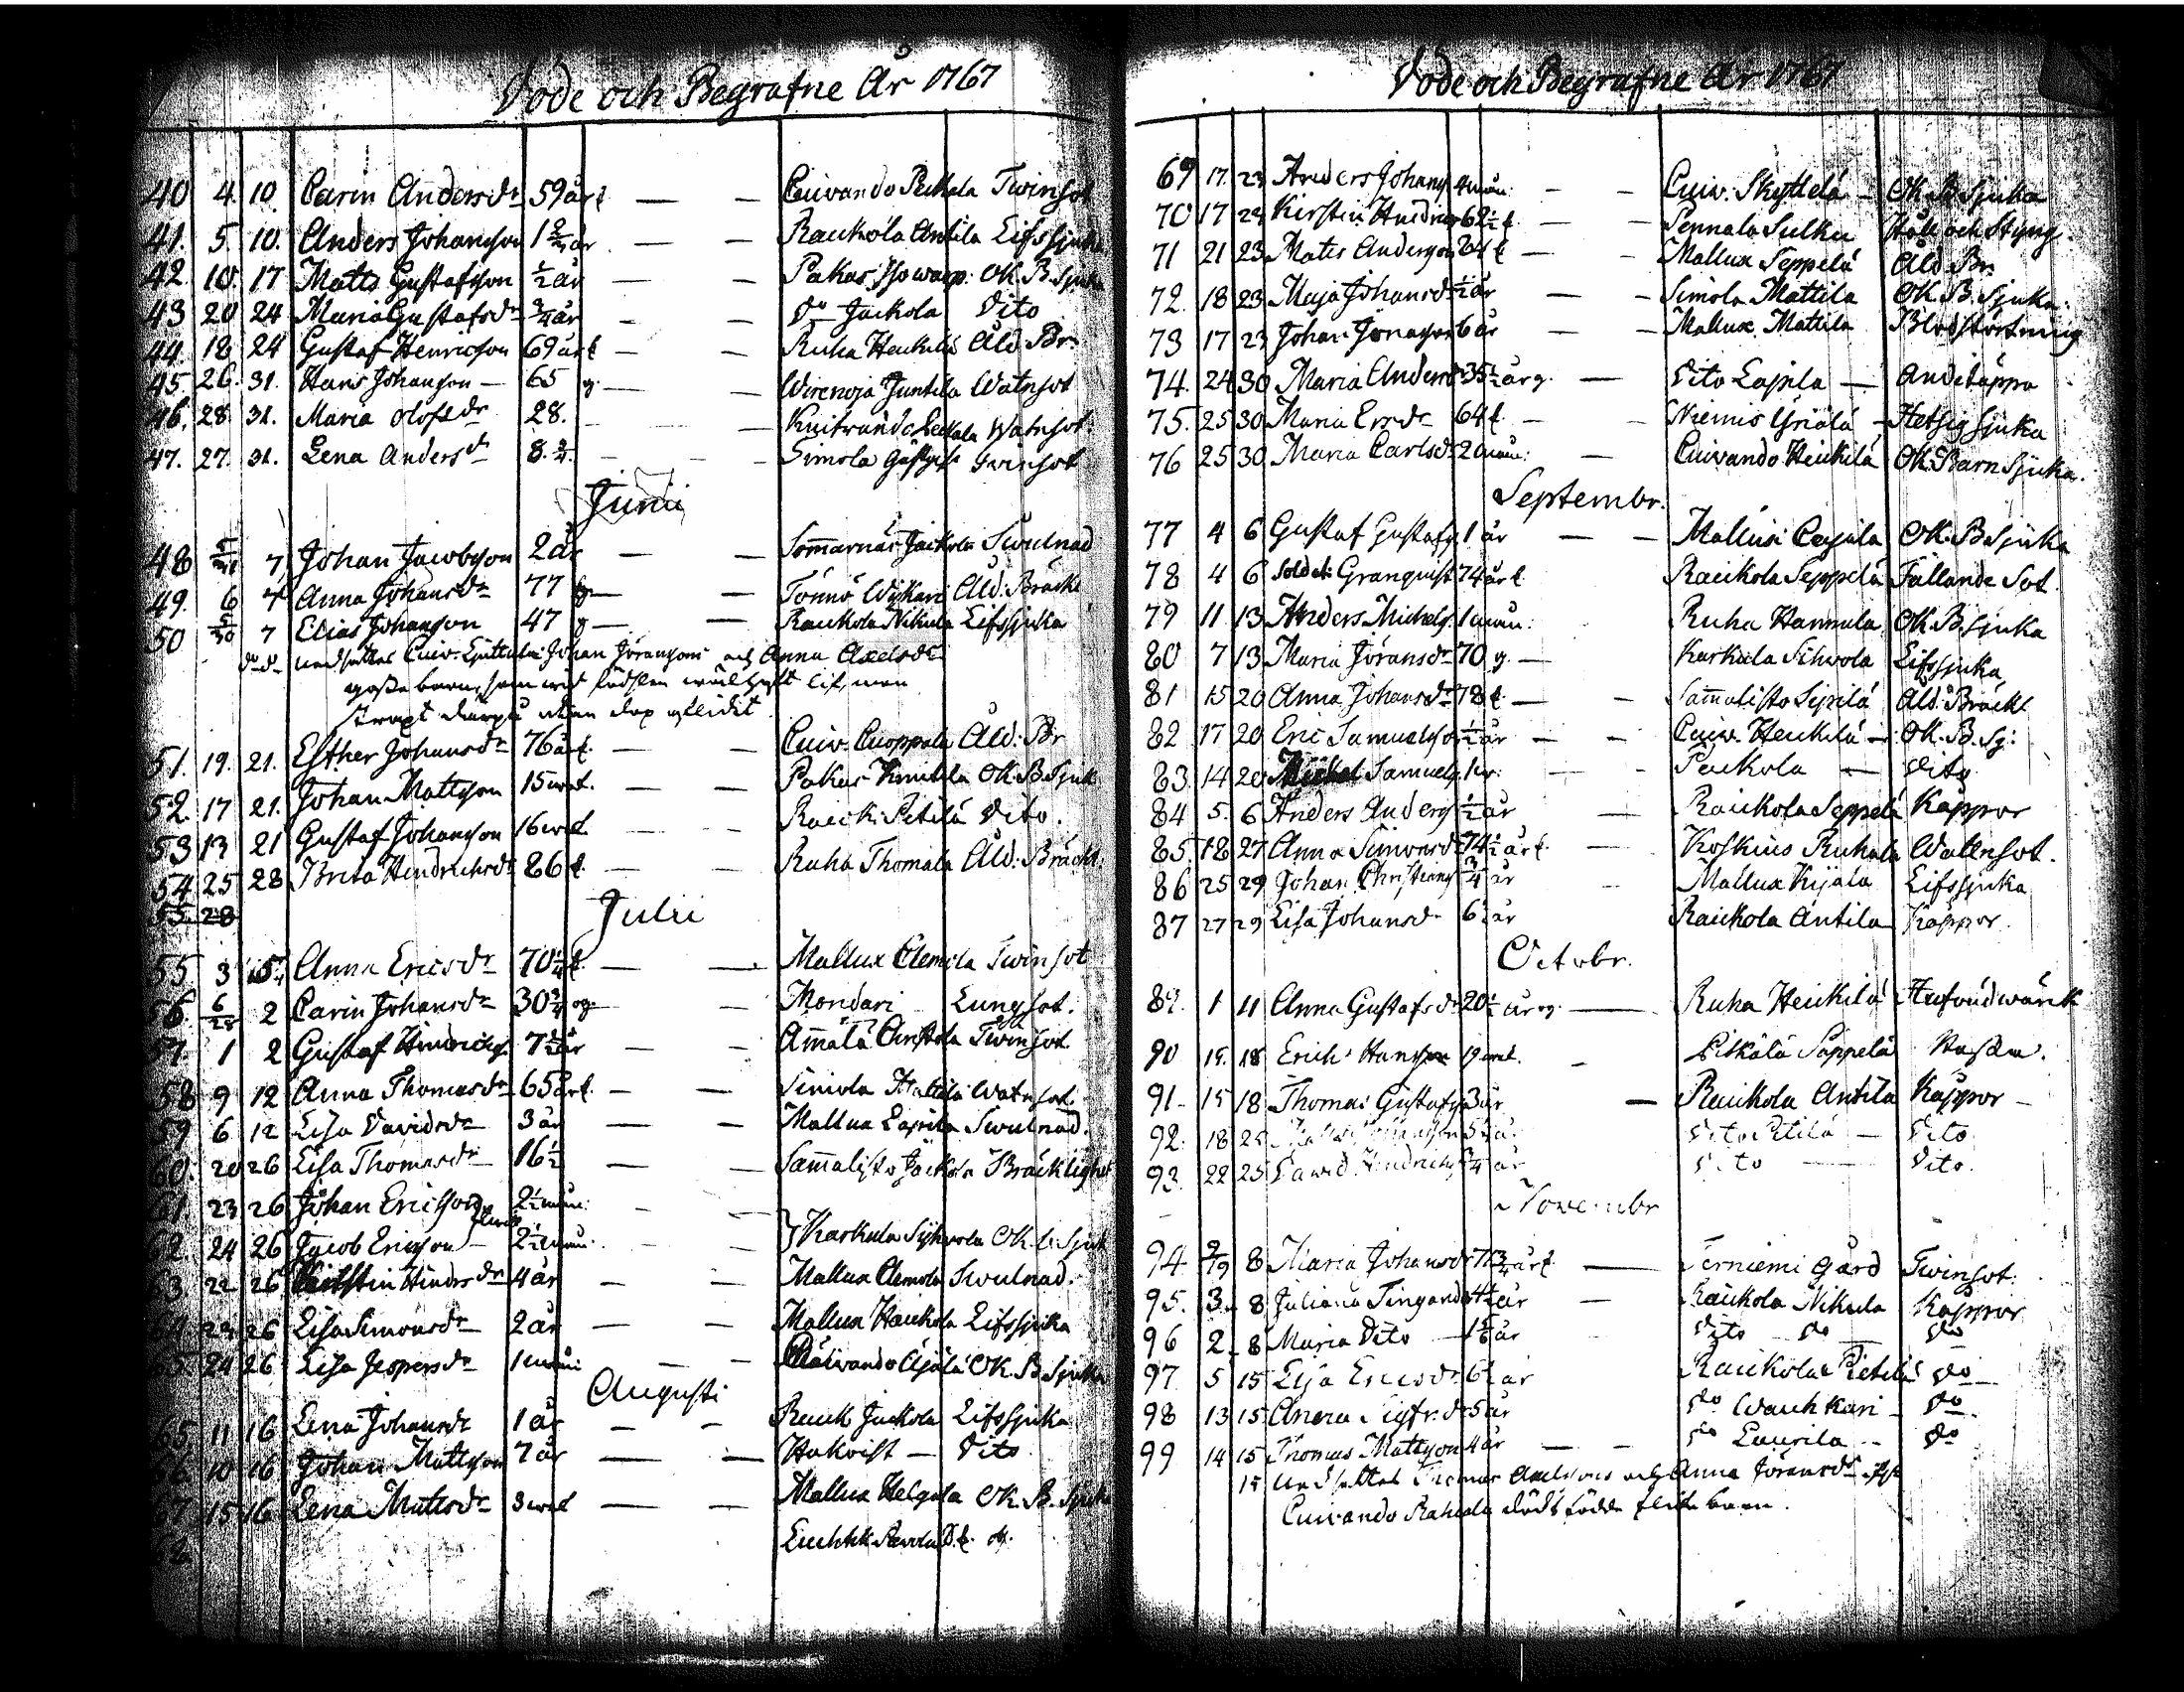 Döde och Begrafne År 1767
40 4. 10. Carin Andersdr 59 år t — — Cuivando Pekkola Twinsot
41. 5. 10. Anders Johansson 1 2/4 år — — Raukola Antila Lifssjuka
42. 10. 17 Matts Gustafsson ½ år — — Pakas OK. B. Sjuka
43 20 24 Maria Gustafsdr ¾ år — — Do Jackola Dito
44. 18 24 Gustaf Henricsson 69 år t — Ruha Heickilä Åld. Br.
45. 26. 31. Hans Johansson — 65 g. — — Wirenoja Juntila Watnsot
46. 28. 31. Maria Olofsdr 28. — Watnsot.
47. 27. 31. Lena Andersdr 8. ¾. — — Simola Twinsot
Junii
48 7 Johan Jacobsson 2 år — — Sommarnäs Jackola Swulnad
49. 6 7 Anna Johansdr 77 g — — Tönnö Wykari Åld. Bräckl
50 5/30 7 Elias Johansson 47 g — — Raukola Nikula Lifssjuka
do do nedsattes Cuiv. Johan Jöranssons och Anna Axelsdr
gosse barn, som wid födslen lif, men
strax utan dop aflidit
51. 19. 21. Esther Johansdr 76 år t. — — Cuiv. Cuoppala Åld: Br
52. 17 21. Johan Mattsson 15 wek. — — Pakas Knutila OK. B. Sjuk
53 13 21 Gustaf Johansson 16 wek — — Rauck. Petilä Dito.
54 25 28 Brita Hindrichsdr 86 t. — — Ruha Thomala Åld: Bräckl.
55. 28
Julii
55 3 5 Anna Ericsdr 70¼ t. — — Mallux Clemola Twinsot
56. 6/28 2 Carin Johansdr 30¾ og. — — Mondari Lungsot.
57. 1 2 Gustaf Hindrichs. 7½ år — — Ammälä Anstola Twinsot
58 9 12 Anna Thomasdr 65 år t. — — Simola Watnsot.
59 6 12 Lisa Davidsdr 3 år — — Mallux Lapila Swulnad.
60. 20 26 Lisa Thomasdr 16½ — — Sammalisto Jackola Bräcklighet
61 23 26 Johan Ericsson 2½ mån: — —
62. 24 26 Jacob Ericsson — 2½ mån. — — } Karkula Syhvola OK. b. Sjuk
63. 22 26 Kirstin Hindrsdr 4 år — — Mallux Clemola Swulnad.
64 23 26 Lisa Simonsdr 2 år — — Mallux Hauckola Lifssjuka
65. 24 26 Lisa Jespersdr 1 mån: — — Cuivando Äjälä OK. B. Sjuka
Augusti
65. 11 16 Lena Johansdr 1 år — — Rauk Jackola Lifssjuka
66. 10 16 Johan Mattsson 7 år — — Hakoist — Dito
67 15 16 Lena Mattsdr 3 wek — — Mallux Helgola OK. B. Sjuk
68
Döde och Begrafne År 1767
69 17. 23 Anders Johanss 4 mån: — — Cuiv. Skyttelä — OK. B. Sjuka
70 17 23 Kirstin Hindrics 62½ t. — — Pennala Sulku Håll och Styng.
71 21 23 Mats Andersson 64 t — — Mallux Seppelä Åld. Br.
72. 18 23 Maja Johansdr ½ år — — Simola Mattila OK. B. Sjuka.
73 17 23 Johan Jönasson 6 år — — Mallux. Mattila Blodstörtning
74. 24 30 Maria Andersdr 35½ år g. — Dito Lapila — Andetäppa
75. 25 30 Maria Ersdr 64 t. — — Niemis Yriälä — Hetsig Sjuka
76 25 30 Maria Carlsdr 2 mån: — Cuivando Heickilä OK. Barn Sjuka.
Septembr.
77 4 6 Gustaf Gustafs. 1 år — — Mallusi OK. B. Sjuka
78 4 6 Soldat: Granquist 74 år t. Raukola Seppelä Fallande Sot.
79 11 13 Anders Michels. 1 mån: Ruha Hannula OK. B. Sjuka
80 7 13 Maria Jöransdr 70 g. — Karkula Sihvola Lifssjuka
81 15 20 Anna Johansdr 78 t. — — Sammalisto Sipilä Åld. Bräckl
82 17 20 Eric Samuelsson ½ år — — Cuiv. Heickilä — OK. B. Sj:
83. 14 20 Michel Samuels. — — Packola — Dito
84 5. 6 Anders Anders ½ år — Raukola Seppelä Kåppor
85. 18 27 Anna Simonsd. 74½ år t. — Koskius Ruhala Wattnsot.
86 25 29 Johan Christians ¾ år — Mallux Kijala Lifssjuka
87 27 29 Lisa Johansdr 6½ år Raukola Antila Kåppor
Octobr.
89. 1 11 Anna Gustafsdr 20½ år og. — Ruha Heickilä Hufwudwärk
90 15. 18 Erich Hansson 19 wek. — Pitkälä Sappelä
91- 15 18 Thomas Gustafs. 3 år — Raukola Antila Kåppor —
92. 18 25 Dito Petilä — Dito
93. 22 25 David Hindrichs ¾ år Dito — Dito.
Novembr
94. 2/9 8 Maria Johansdr 71¾ år t. — Terniemi Gård Twinsot.
95. 3. 8 Juliana Tingand. 4½ år — Raukola Nikula Kåppor
96 2. 8 Maria Dito — Dito do — do
97 5 15 Lisa Ericsdr 6½ år Raukola Pietilä do
98 13 15 Anna Sigfr.dr 5 år do Wauhkari — do.
99 14 15 Thomas Mattsson 4 år — — do Laurila — do
15 Nedsattes Thomas Axelssons och Anna Jöransdr
Cuivando dödfödde flicke barn.